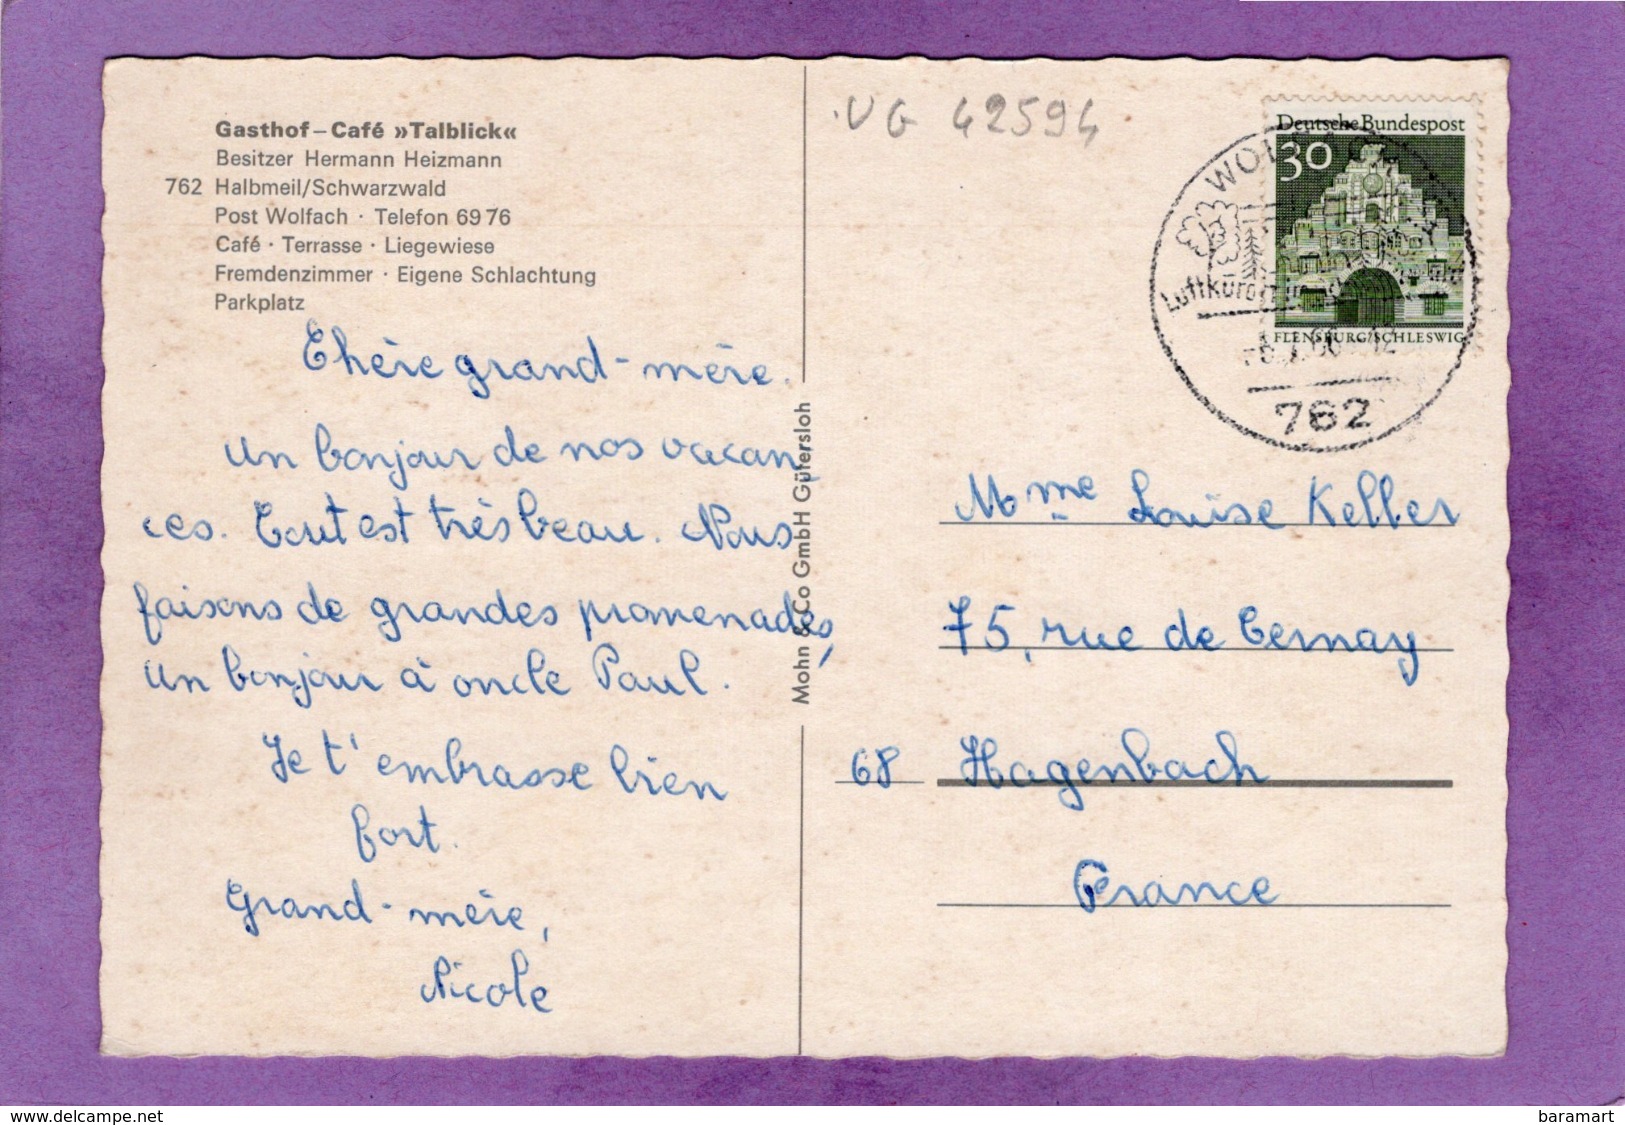 Gasthof – Café »Talblick«
Besitzer Hermann Heizmann
762 Halbmeil/Schwarzwald
Post Wolfach · Telefon 69 76
Café · Terrasse · Liegewiese
Fremdenzimmer · Eigene Schlachtung
Parkplatz
Chère grand-mère.
Un bonjour de nos vacan
ces. Tout est très beau. Nous
faisons de grandes promenades,
un bonjour à oncle Paul.
Je t'embrasse bien
fort.
Grand-mère,
Nicole
Mohn & Co GmbH Gütersloh
VG 42594
Deutsche Bundespost
30
FLENSBURG/SCHLESWIG
Luftkurort
762
Mme Louise Keller
75, rue de Cernay
68 Hagenbach
France
www.delcampe.net
baramart